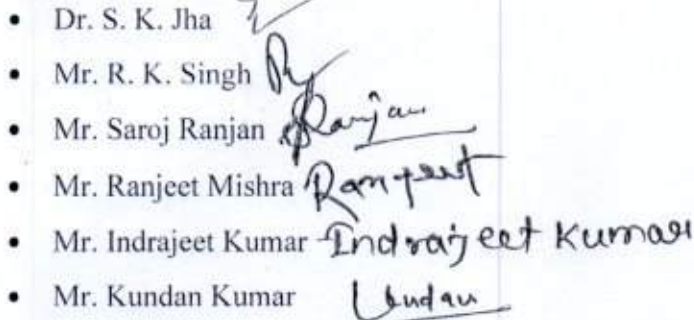 • Dr. S. K. Jha
• Mr. R. K. Singh
• Mr. Saroj Ranjan SRanjan
• Mr. Ranjeet Mishra Ranjeet
• Mr. Indrajeet Kumar Indrajeet Kumar
• Mr. Kundan Kumar Kundan